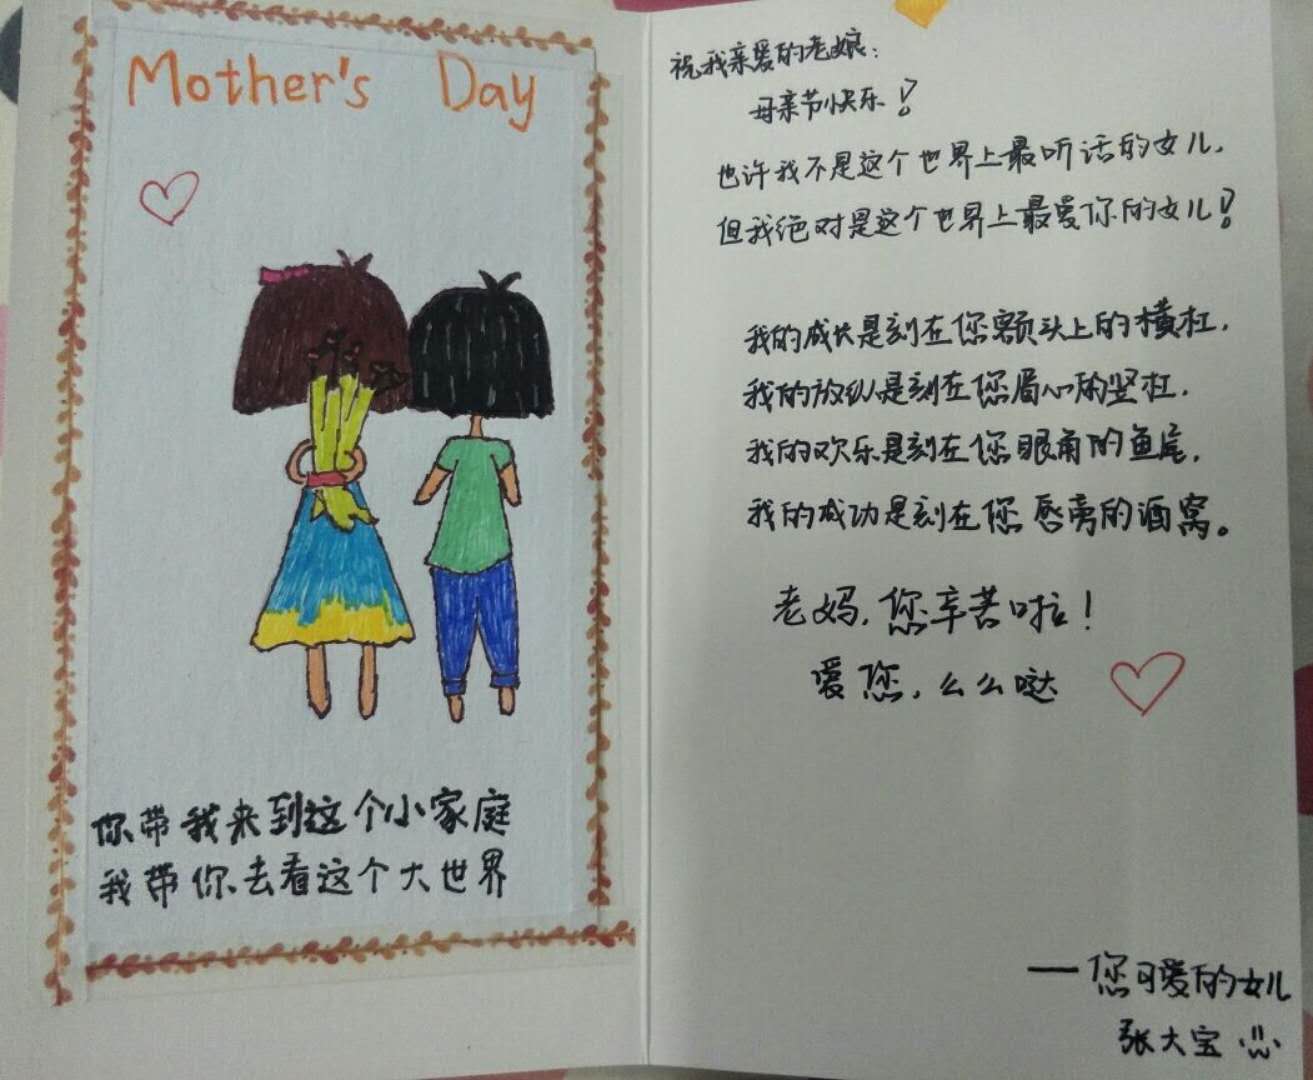 Mother's Day
你带我来到这个小家庭
我带你去看这个大世界
祝我亲爱的老娘：
母亲节快乐！
也许我不是这个世界上最听话的女儿，
但我绝对是这个世界上最爱你的女儿！
我的成长是刻在您额头上的横杠，
我的放纵是刻在您眉心的竖杠，
我的欢乐是刻在您眼角的鱼尾，
我的成功是刻在您唇旁的酒窝。
老妈，您辛苦啦！
爱您，么么哒
——您可爱的女儿
张大宝